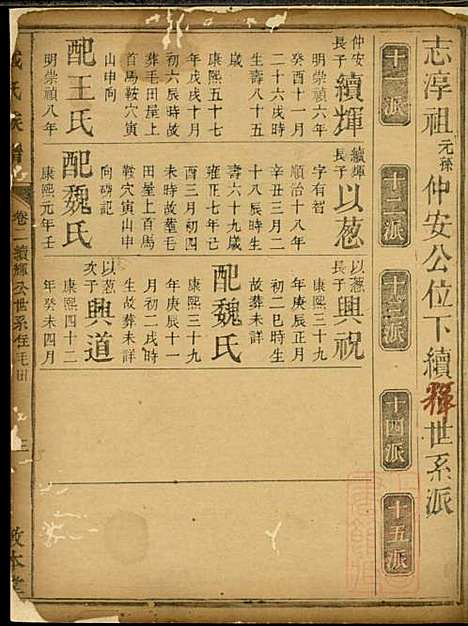 志淳祖元孫仲安公位下續輝世系派
十一派
十二派
十三派
十四派
十五派
仲安長子續輝
明崇禎六年
癸酉十一月
二十六時生
壽八十五
歲
康熙五十七
年戊戌十月
初六辰時故
葬毛田屋上
首馬鞍穴寅
山申向
配王氏
明崇禎八年
續輝長子以葱
字有智
順治十八年
辛丑三月二
十八辰時生
壽六十九歲
雍正七年己
酉三月初四
未時故葬毛
田屋上首馬
鞍穴寅山申
向碑記
配魏氏
康熙元年壬
以葱長子興祝
康熙三十九
年庚辰正月
初二巳時生
故葬未詳
配魏氏
康熙三十九
年庚辰十一
月初二戌時
生故葬未詳
以葱次子興道
康熙四十二
年癸未四月
氏族譜
續輝公世系住毛田
三
敦本堂